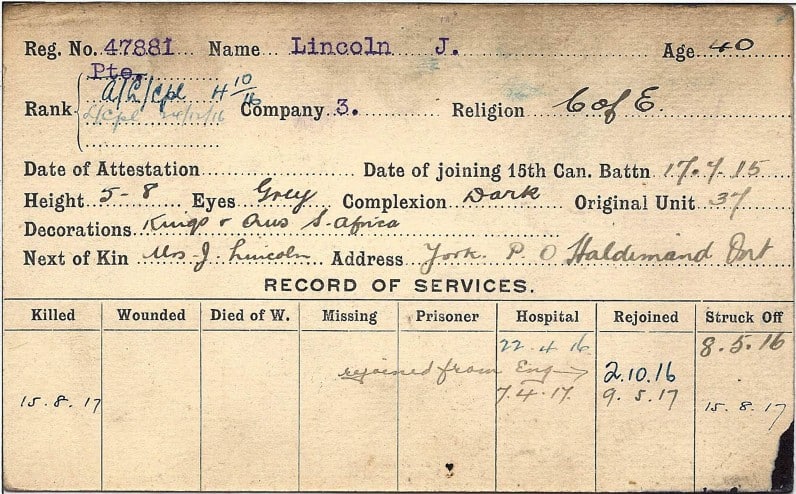 Reg. No. 47881 Name Lincoln J. Age 40
Pte.
Rank A/L/Cpl 4 10/16 Company 3. Religion C of E.
L/Cpl 24/12/16
Date of Attestation Date of joining 15th Can. Battn 17.7.15
Height 5-8 Eyes Grey Complexion Dark Original Unit 37
Decorations Kings & Qus S. Africa
Next of Kin Mrs. J. Lincoln Address York. P. O Haldimand Ont
RECORD OF SERVICES.
Killed Wounded Died of W. Missing Prisoner Hospital Rejoined Struck Off
22.4.16 8.5.16
rejoined from Eng 2.10.16
15.8.17 7.4.17. 9.5.17 15.8.17